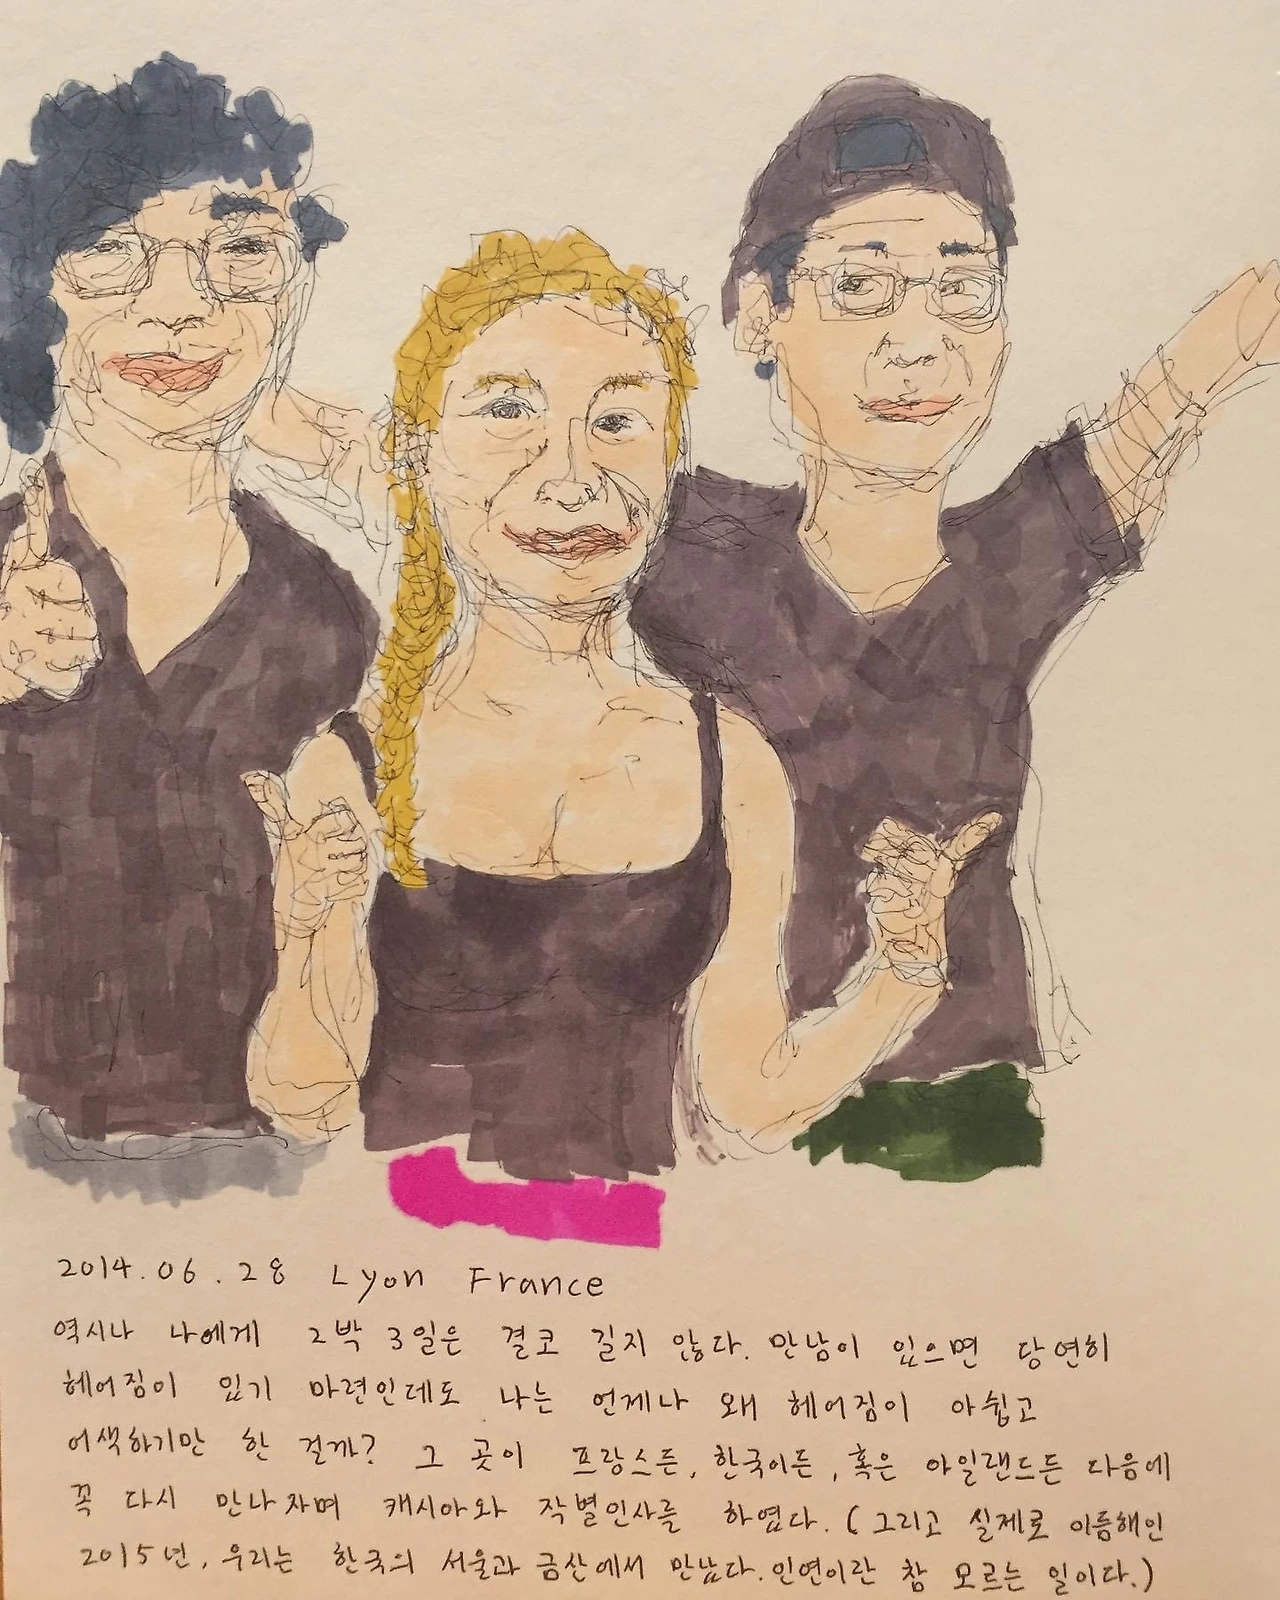 2014.06.28 Lyon France
역시나 나에게 2박 3일은 결코 길지 않다. 만남이 있으면 당연히
헤어짐이 있기 마련인데도 나는 언제나 왜 헤어짐이 아쉽고
어색하기만 한 걸까? 그 곳이 프랑스든, 한국이든, 혹은 아일랜드든 다음에
꼭 다시 만나자며 캐시아와 작별인사를 하였다. (그리고 실제로 이듬해인
2015년, 우리는 한국의 서울과 금산에서 만났다. 인연이란 참 모르는 일이다.)